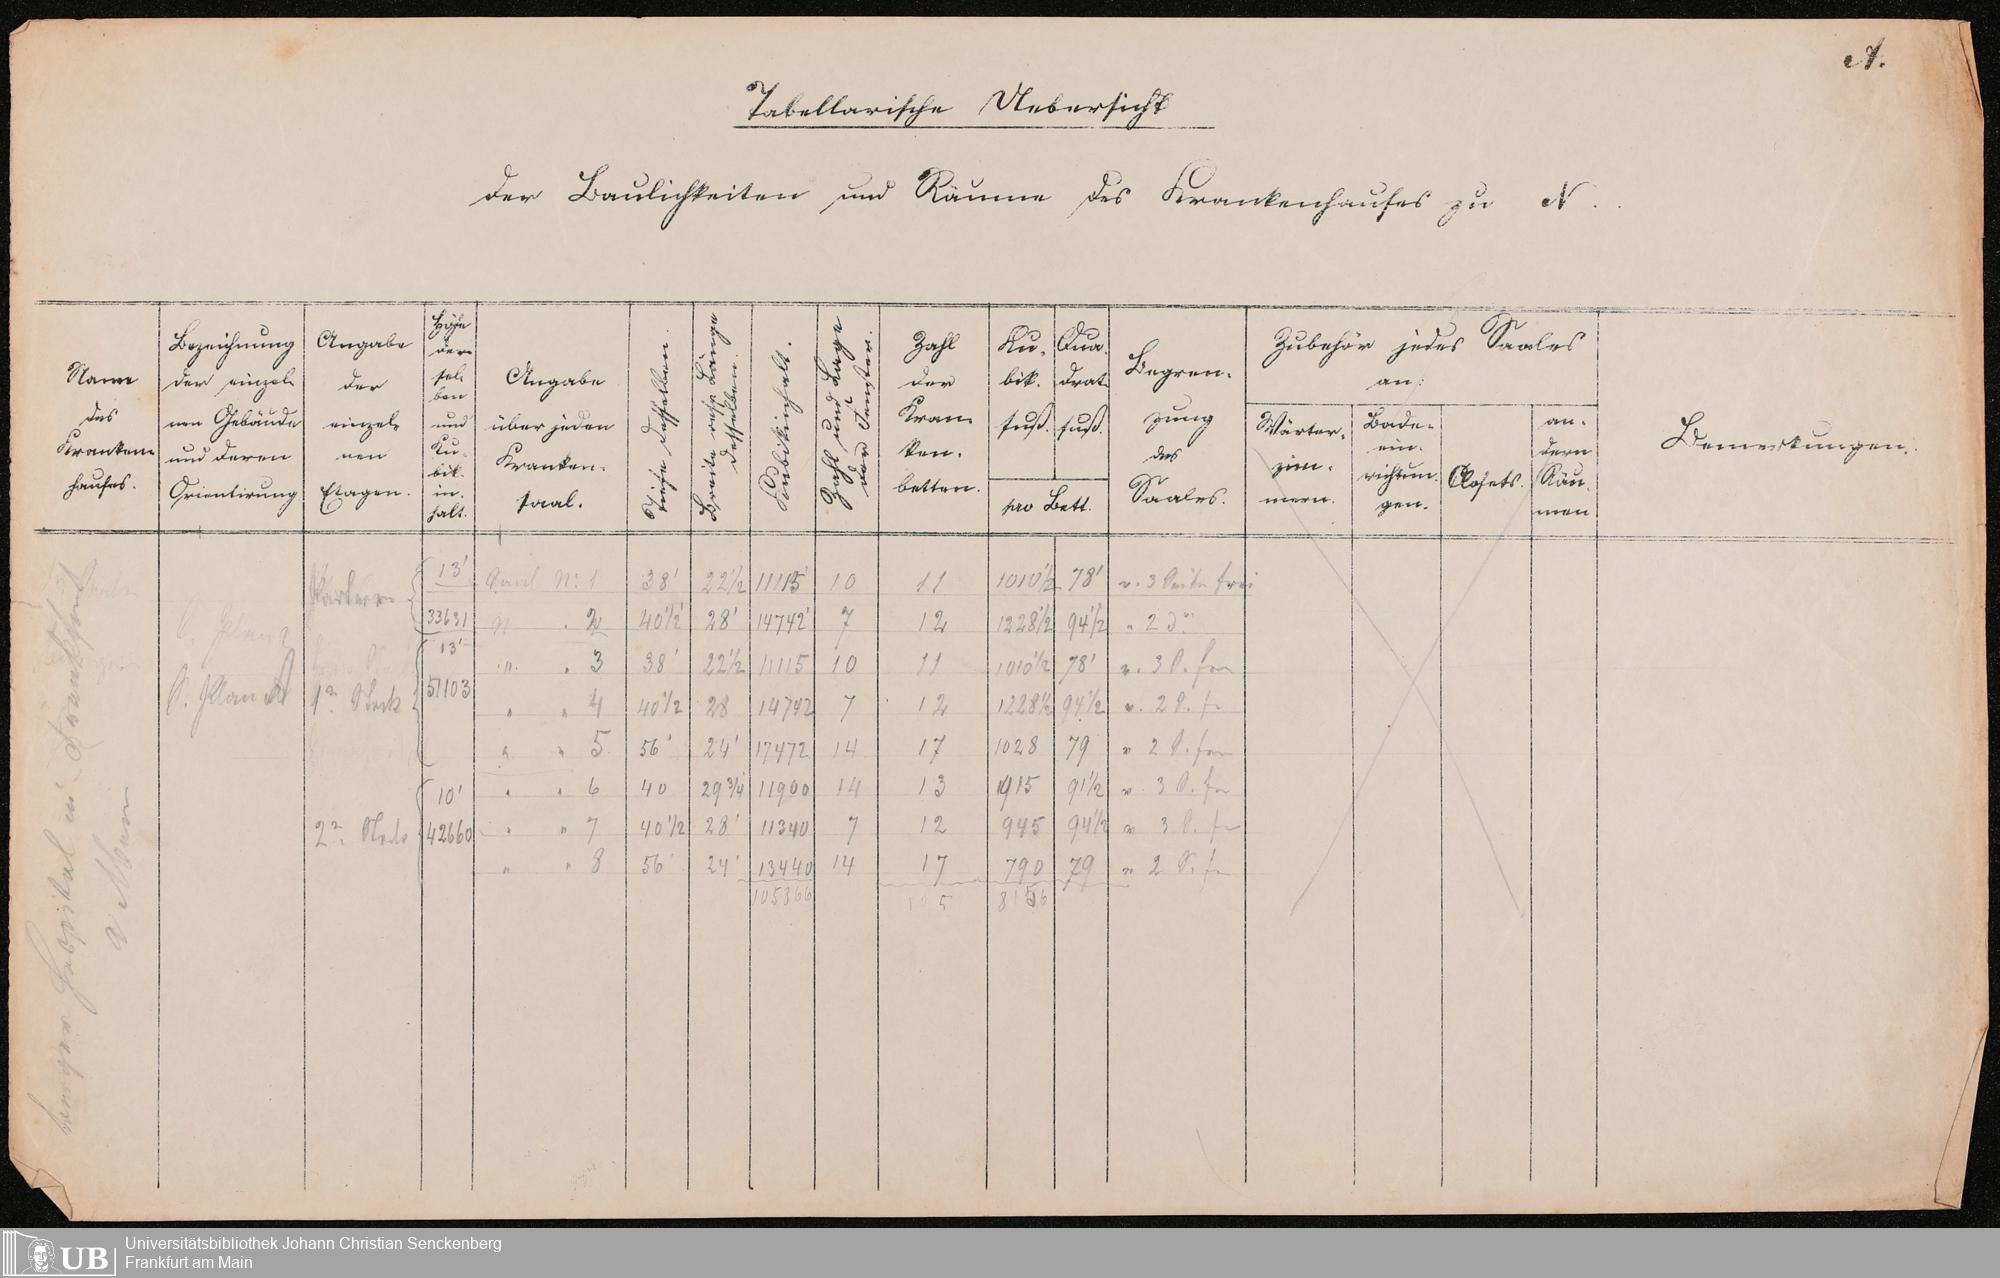 A.
Tabellarische Uebersicht
der Baulichkeiten und Räume des Krankenhauses zu N.
Name
des
Kranken-
hauses.
Bezeichnung
der einzel-
nen Gebäude
und deren
Orientirung
Angabe
der
einzel-
nen
Etagen.
Höhe
der-
sel-
ben
und
Ku-
bik-
in-
halt.
Angabe
über jeden
Kranken-
saal.
Tiefe desselben.
Breite resp. Länge
desselben.
Kubikinhalt.
Zahl und Lage
der Fenster.
Zahl
der
Kran-
ken-
betten.
Ku-
bik-
fuß.
Qua-
drat
fuß.
pro Bett.
Begren-
zung
des
Saales.
Zubehör jedes Saales
an:
Wärter-
zim-
mern.
Bade-
ein-
richtun-
gen.
Closets.
an-
dern
Räu-
men
Bemerkungen.
Hospital in Frankfurt
a Main
S. Plan A
Parterre 13' 33631
Saal No 1 38' 22 1/2 11115' 10 11 1010 1/2 78' v. 3 Seiten frei
" " 2 40 1/2' 28' 14742' 7 12 1228 1/2 94 1/2 " 2 do
1r Stock 13' 51103
" " 3 38' 22 1/2 11115 10 11 1010 1/2 78' v. 3 S. frei
" " 4 40 1/2 28 14742 7 12 1228 1/2 94 1/2 v. 2 S. fr
" " 5 56' 24' 17472 14 17 1028 79 v 2 S. frei
2r Stock 10' 42660
" " 6 40 29 3/4 11900 14 13 915 91 1/2 v. 3 S. fr
" " 7 40 1/2 28' 11340 7 12 945 94 1/2 v 3 S. fr
" " 8 56' 24' 13440 14 17 790 79 v 2 S. fr
105866 105 8156
UB
Universitätsbibliothek Johann Christian Senckenberg
Frankfurt am Main